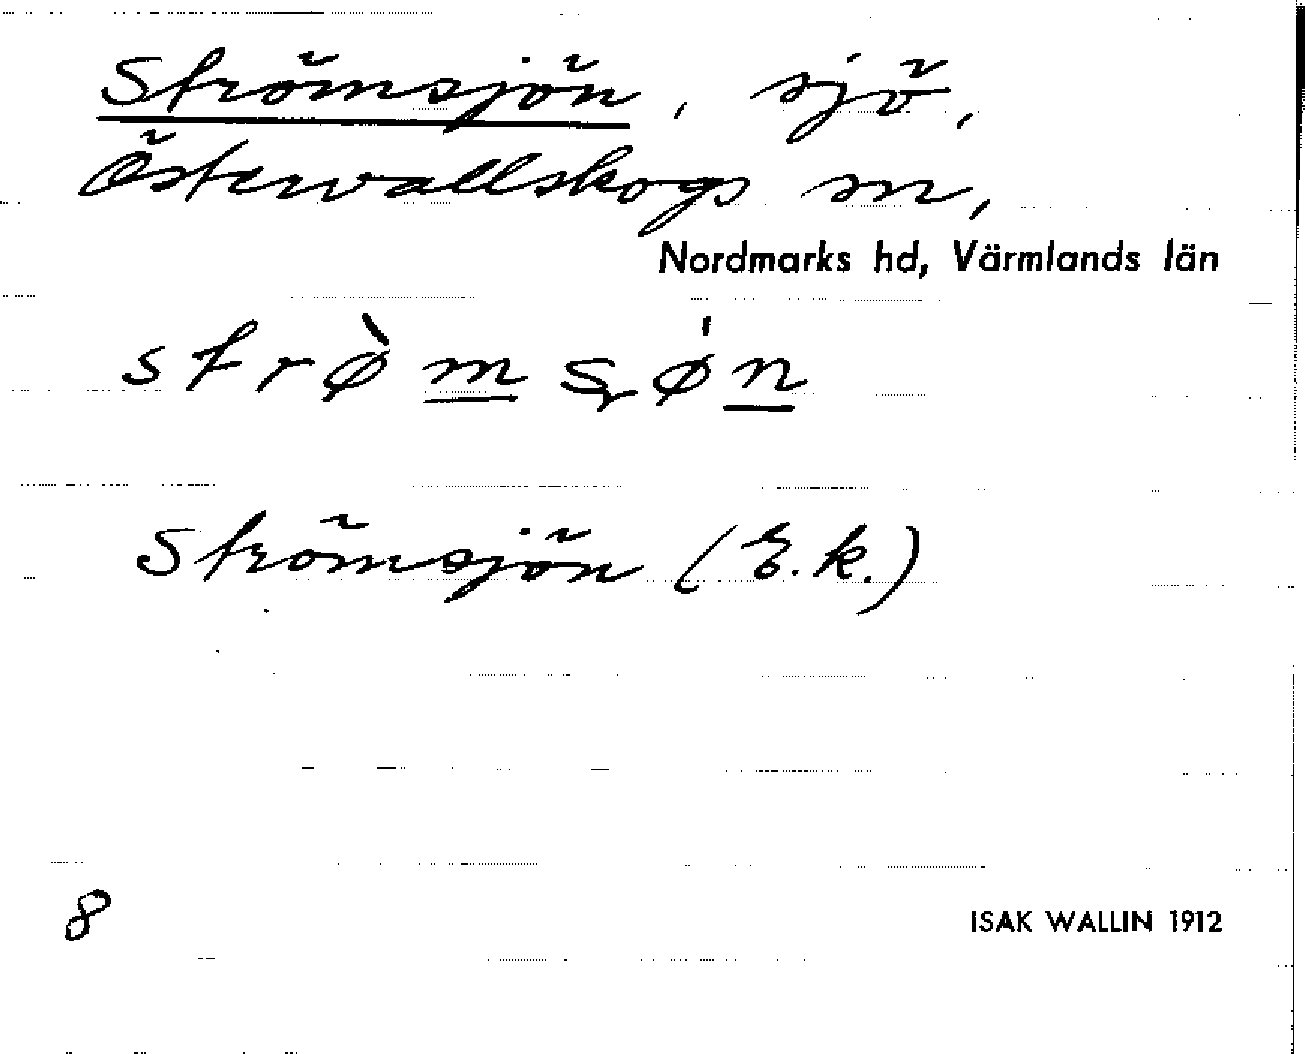 Strömsjön, sjö,
Östervallskogs sn,
Nordmarks hd, Värmlands län
strø̀msɟø̍n
Strömsjön (E.k.)
8
ISAK WALLIN 1912